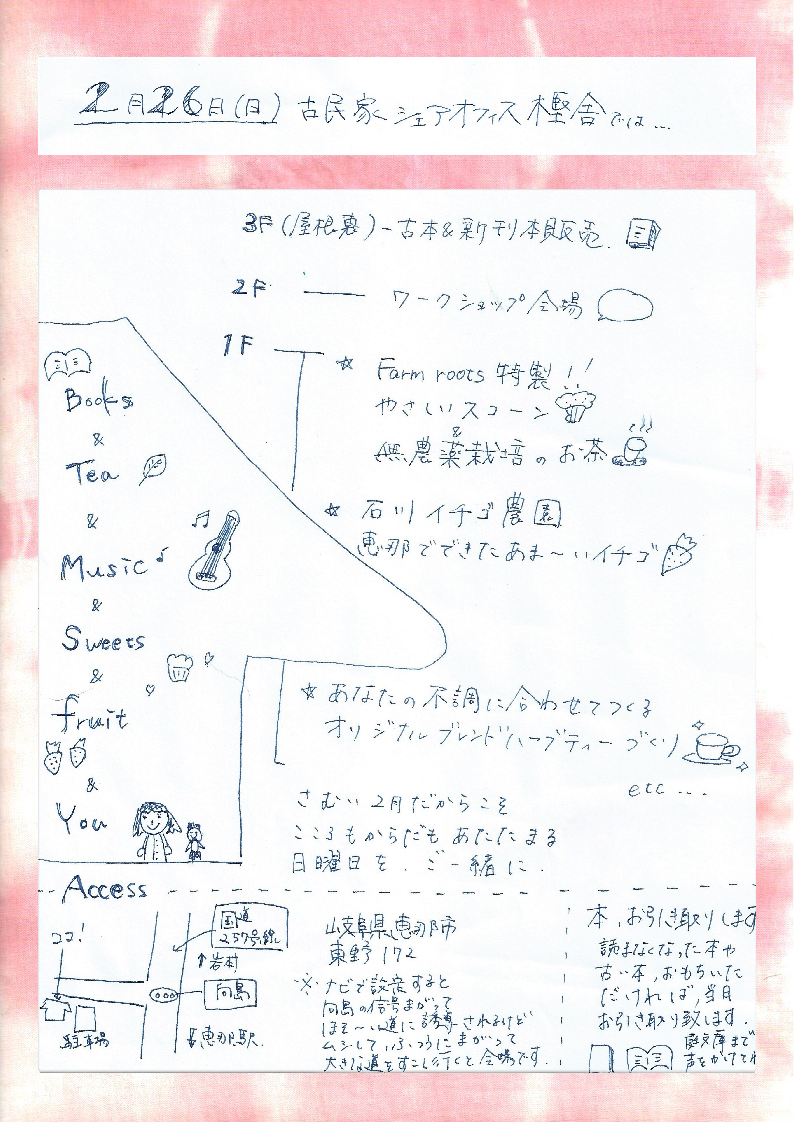 2月26日(日) 古民家シェアオフィス樫舎では…
3F(屋根裏)-古本&新刊本販売.
2F ― ワークショップ会場
1F
☆ Farm roots 特製!!
やさしいスコーン
&
無農薬栽培のお茶
☆ 石川イチゴ農園
恵那でできたあま〜いイチゴ
☆ あなたの不調に合わせてつくる
オリジナルブレンドハーブティーづくり
etc ...
さむい2月だからこそ
こころもからだもあたたまる
日曜日を、ご一緒に.
Books
&
Tea
&
Music
&
Sweets
&
fruit
&
You
Access
ココ!
国道
257号線
↑岩村
向島
駐車場
恵那駅.
岐阜県恵那市
東野172
※ナビで設定すると
向島の信号まがって
ほそ〜い道に誘導されるけど
ムシして、ふつうにまがって
大きな道をすこし行くと会場です.
本、お引き取りします
読まなくなった本や
古い本、おもちいた
だければ、当日
お引き取り致します.
庭文庫まで
声をかけて